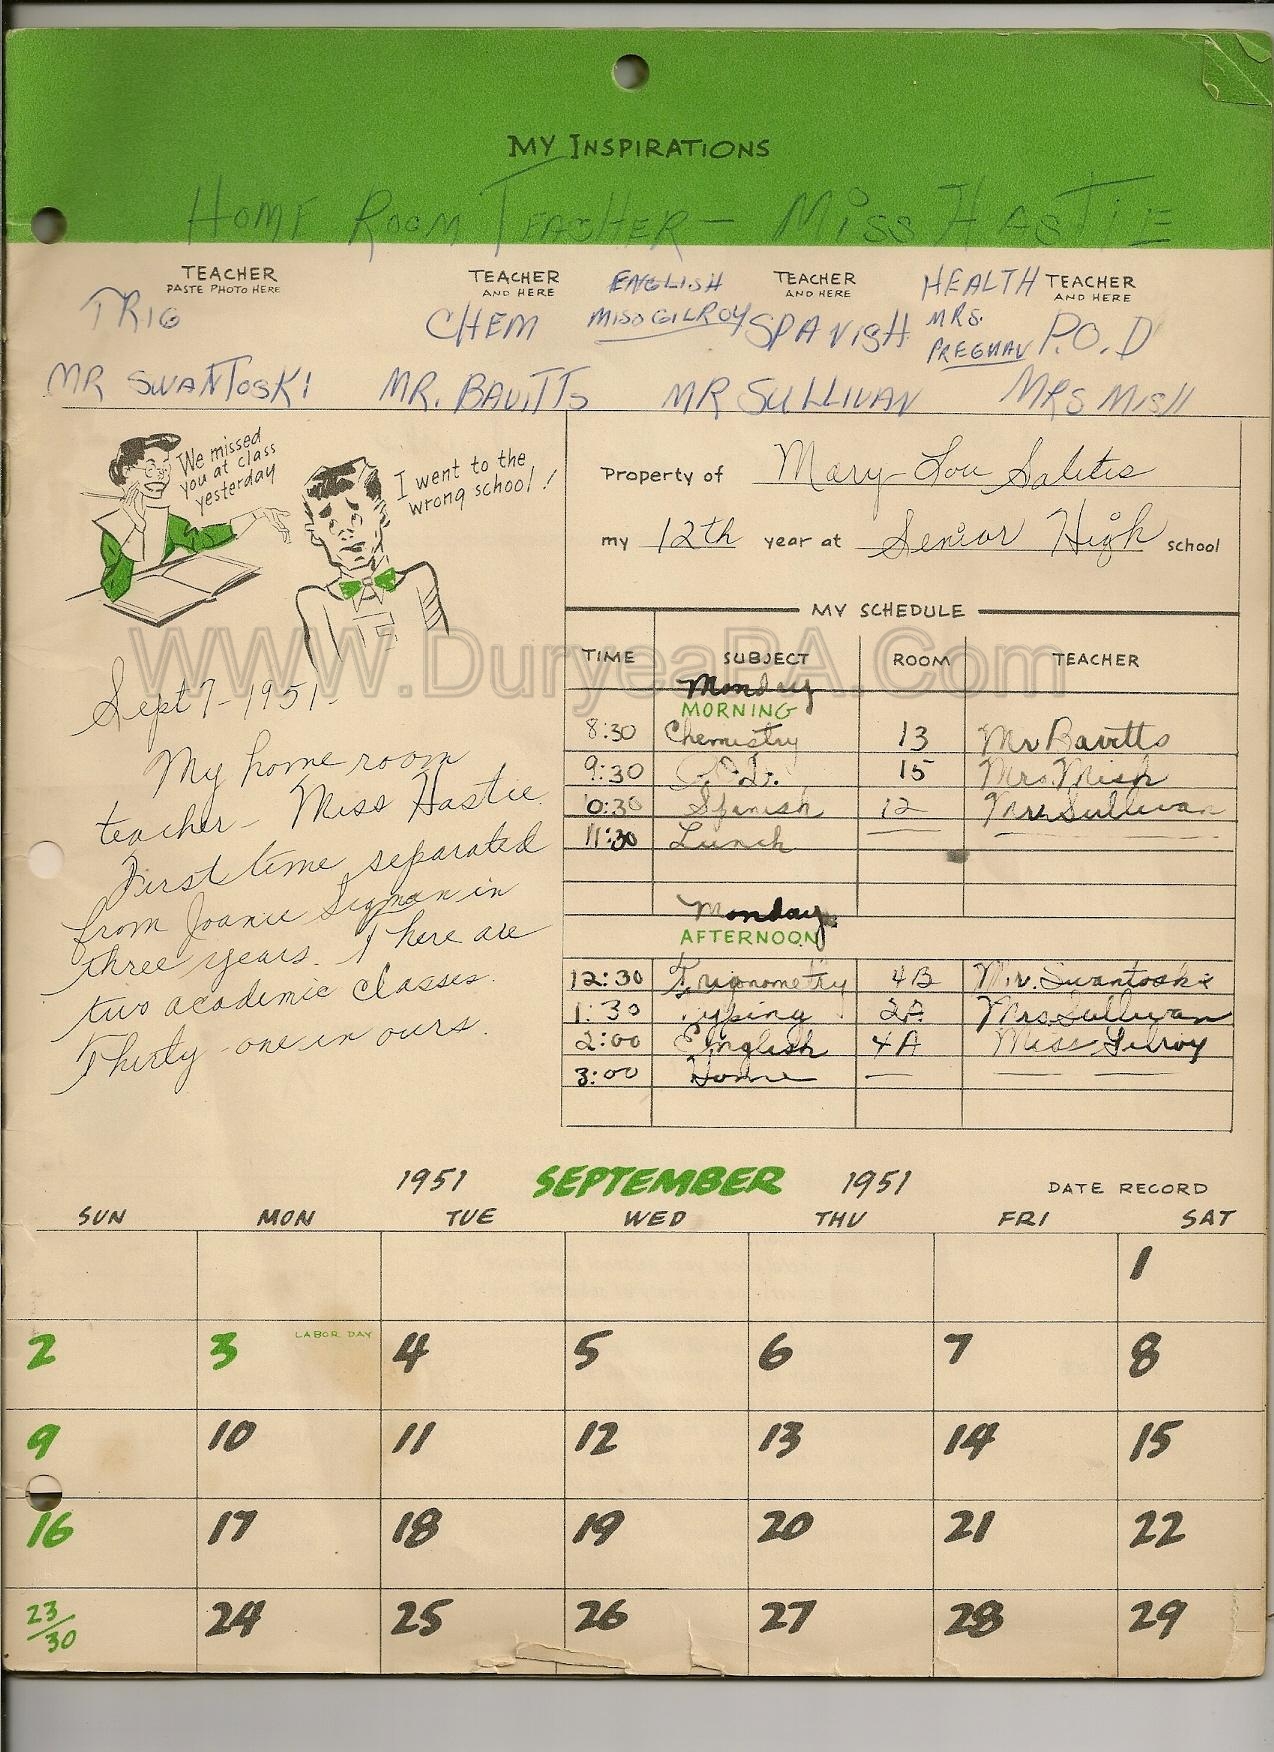 MY INSPIRATIONS
HOME ROOM TEACHER - MISS HASTIE
TEACHER
PASTE PHOTO HERE
TRIG
MR SWANTOSKI
TEACHER
AND HERE
CHEM
MR. BAVITTS
ENGLISH
MISS GILROY
TEACHER
AND HERE
SPANISH
MR SULLIVAN
HEALTH
MRS.
TEACHER
AND HERE
P.O.D
MRS MISH
We missed
you at class
yesterday
I went to the
wrong school!
Property of Mary Lou
my 12th year at Senior High school
MY SCHEDULE
TIME SUBJECT ROOM TEACHER
Monday
MORNING
8:30 Chemistry 13 Mr Bavitts
9:30 P.O.D. 15 Mrs. Mish
10:30 Spanish 12 Mrs Sullivan
11:30 Lunch
Monday
AFTERNOON
12:30 Trigonometry 4B Mr. Swantoski
1:30 Typing 2A Mrs Sullivan
2:00 English 4A Miss Gilroy
3:00 Home
www.DuryeaPA.Com
Sept 7-1951.
My home room
teacher - Miss Hastie.
First time separated
from Joanie in
three years. There are
two academic classes.
Thirty-one in ours.
1951 SEPTEMBER 1951 DATE RECORD
SUN MON TUE WED THU FRI SAT
1
2 3 LABOR DAY 4 5 6 7 8
9 10 11 12 13 14 15
16 17 18 19 20 21 22
23/30 24 25 26 27 28 29